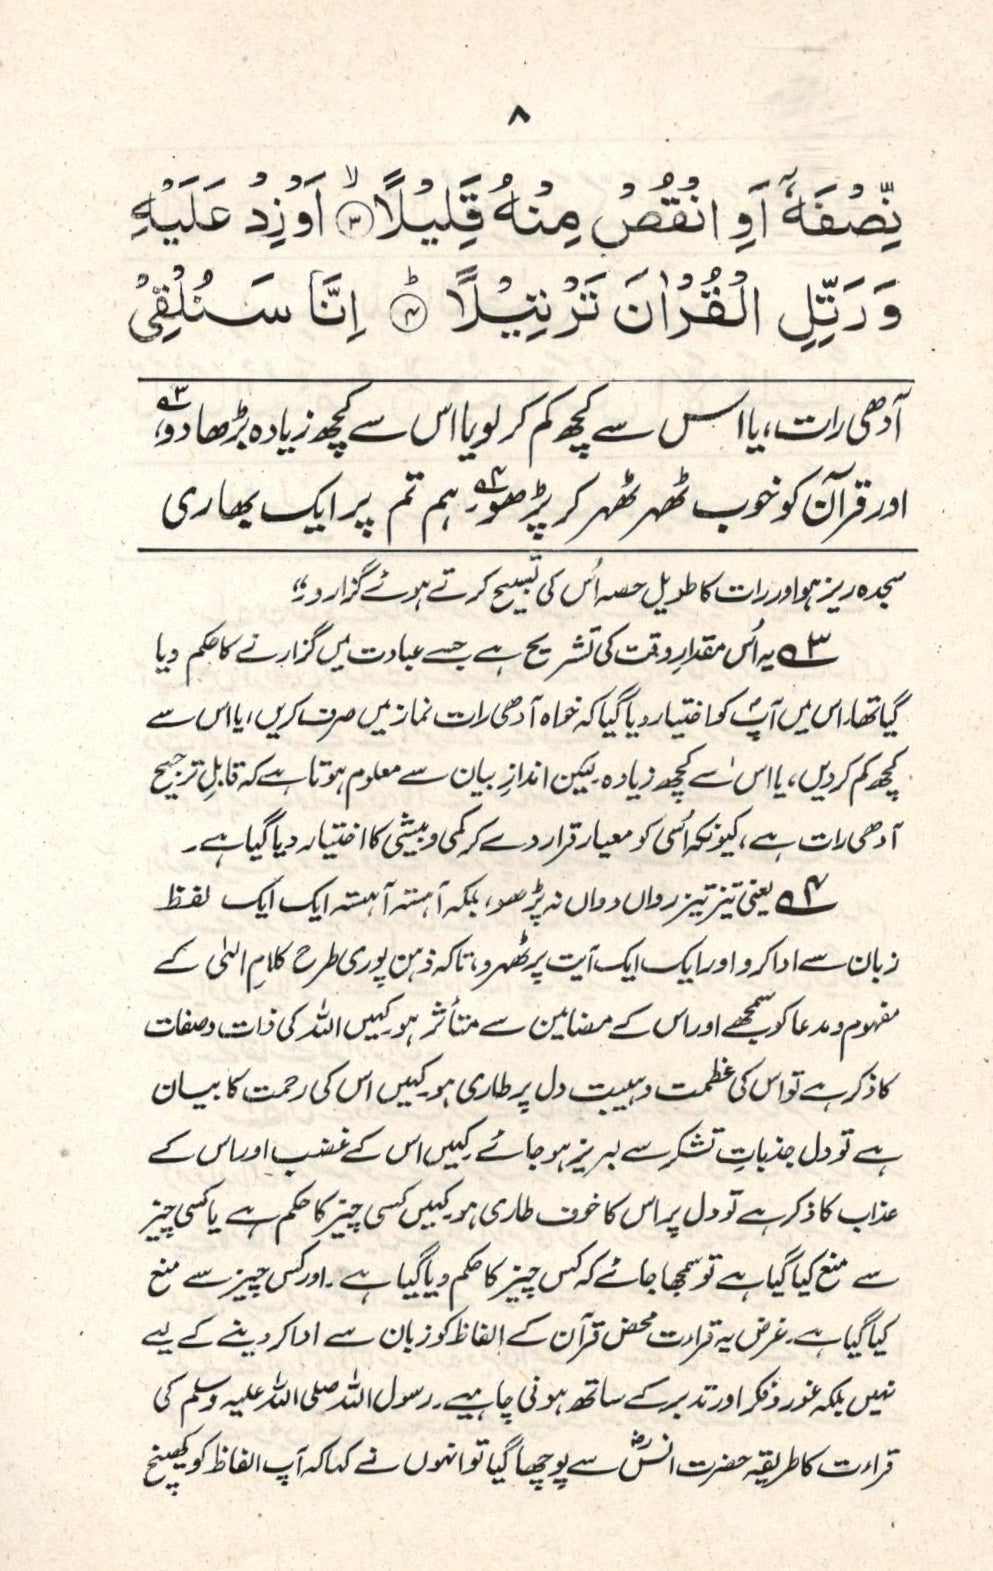 ۸
نِّصْفَهٗۤ اَوِ انْقُصْ مِنْهُ قَلِیْلًا ۙ﴿۳﴾ اَوْ زِدْ عَلَیْهِ
وَ رَتِّلِ الْقُرْاٰنَ تَرْتِیْلًا ؕ﴿۴﴾ اِنَّا سَنُلْقِیْ
آدھی رات، یا اس سے کچھ کم کر لو یا اس سے کچھ زیادہ بڑھا دو،۳؎
اور قرآن کو خوب ٹھہر ٹھہر کر پڑھو۔۴؎ ہم تم پر ایک بھاری
سجدہ ریز ہو اور رات کا طویل حصہ اُس کی تسبیح کرتے ہوئے گزار دو۔“
۳؎ یہ اُس مقدارِ وقت کی تشریح ہے جسے عبادت میں گزارنے کا حکم دیا
گیا تھا۔ اس میں آپؐ کو اختیار دیا گیا کہ خواہ آدھی رات نماز میں صرف کریں، یا اس سے
کچھ کم کر دیں، یا اس سے کچھ زیادہ۔ لیکن اندازِ بیان سے معلوم ہوتا ہے کہ قابلِ ترجیح
آدھی رات ہے، کیونکہ اُسی کو معیار قرار دے کر کمی و بیشی کا اختیار دیا گیا ہے۔
۴؎ یعنی تیز تیز رواں دواں نہ پڑھو، بلکہ آہستہ آہستہ ایک ایک لفظ
زبان سے ادا کرو اور ایک ایک آیت پر ٹھہرو، تاکہ ذہن پوری طرح کلامِ الٰہی کے
مفہوم و مدعا کو سمجھے اور اس کے مضامین سے متأثر ہو۔ کہیں اللہ کی ذات و صفات
کا ذکر ہے تو اس کی عظمت و ہیبت دل پر طاری ہو۔ کہیں اس کی رحمت کا بیان
ہے تو دل جذباتِ تشکر سے لبریز ہو جائے۔ کہیں اس کے غضب اور اس کے
عذاب کا ذکر ہے تو دل پر اس کا خوف طاری ہو۔ کہیں کسی چیز کا حکم ہے یا کسی چیز
سے منع کیا گیا ہے تو سمجھا جائے کہ کس چیز کا حکم دیا گیا ہے۔ اور کس چیز سے منع
کیا گیا ہے۔ غرض یہ قراءت محض قرآن کے الفاظ کو زبان سے ادا کر دینے کے لیے
نہیں بلکہ غور و فکر اور تدبر کے ساتھ ہونی چاہیے۔ رسول اللہ صلی اللہ علیہ وسلم کی
قراءت کا طریقہ حضرت انسؓ سے پوچھا گیا تو انہوں نے کہا کہ آپ الفاظ کو کھینچ